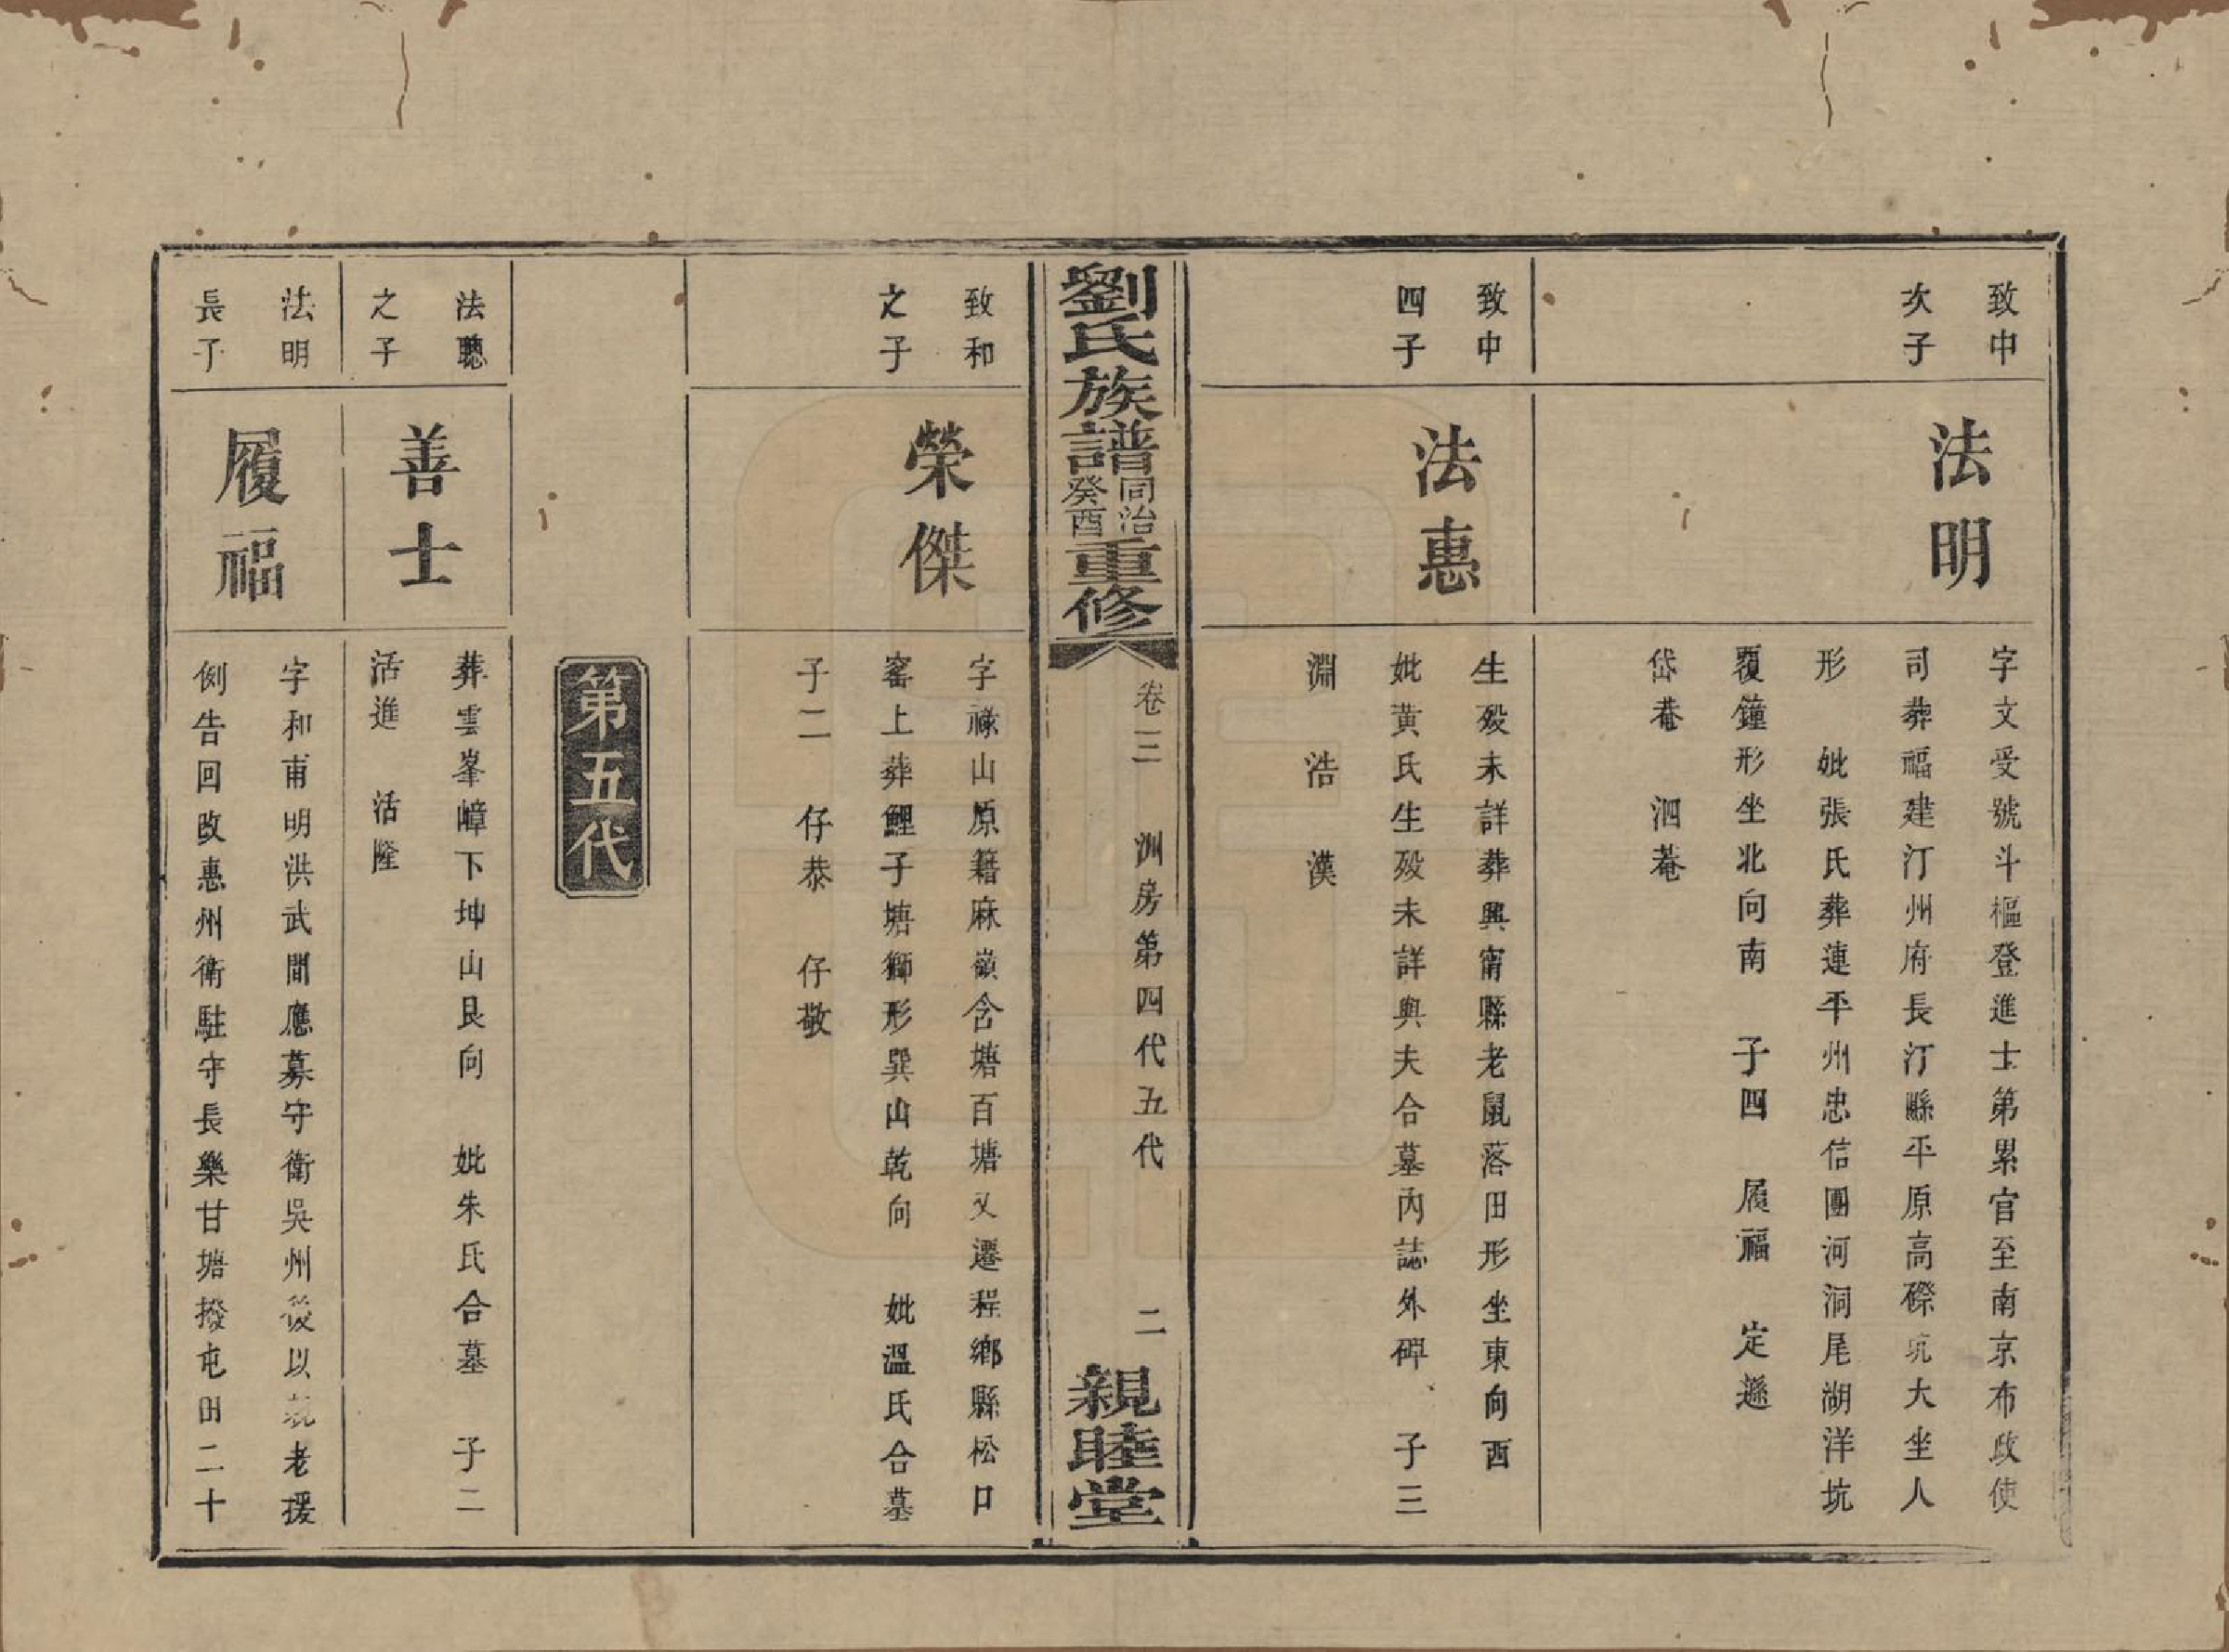 致中
次子
法明
字文受號斗樞登進士第累官至南京布政使
司葬福建汀州府長汀縣平原高磜坑大坐人
形　妣張氏葬連平州忠信團河洞尾湖洋坑
覆鐘形坐北向南　子四　履福　定遜
岱菴　泗菴
致中
四子
法惠
生歿未詳葬興甯縣老鼠落田形坐東向西
妣黃氏生歿未詳與夫合墓內誌外碑　子三
淵　浩　漢
劉氏族譜同治癸酉重修
卷三　洲房第四代五代　二
親睦堂
致和
之子
榮傑
字祿山原籍麻嶺含塘百塘又遷程鄉縣松口
窰上葬鯉子塘獅形巽山乾向　妣溫氏合墓
子二　仔恭　仔敬
第五代
法聰
之子
善士
葬雲峯嶂下坤山艮向　妣朱氏合墓　子二
活進　活隆
法明
長子
履福
字和甫明洪武間應募守衛吳州後以親老援
例告回改惠州衛駐守長樂甘塘撥屯田二十